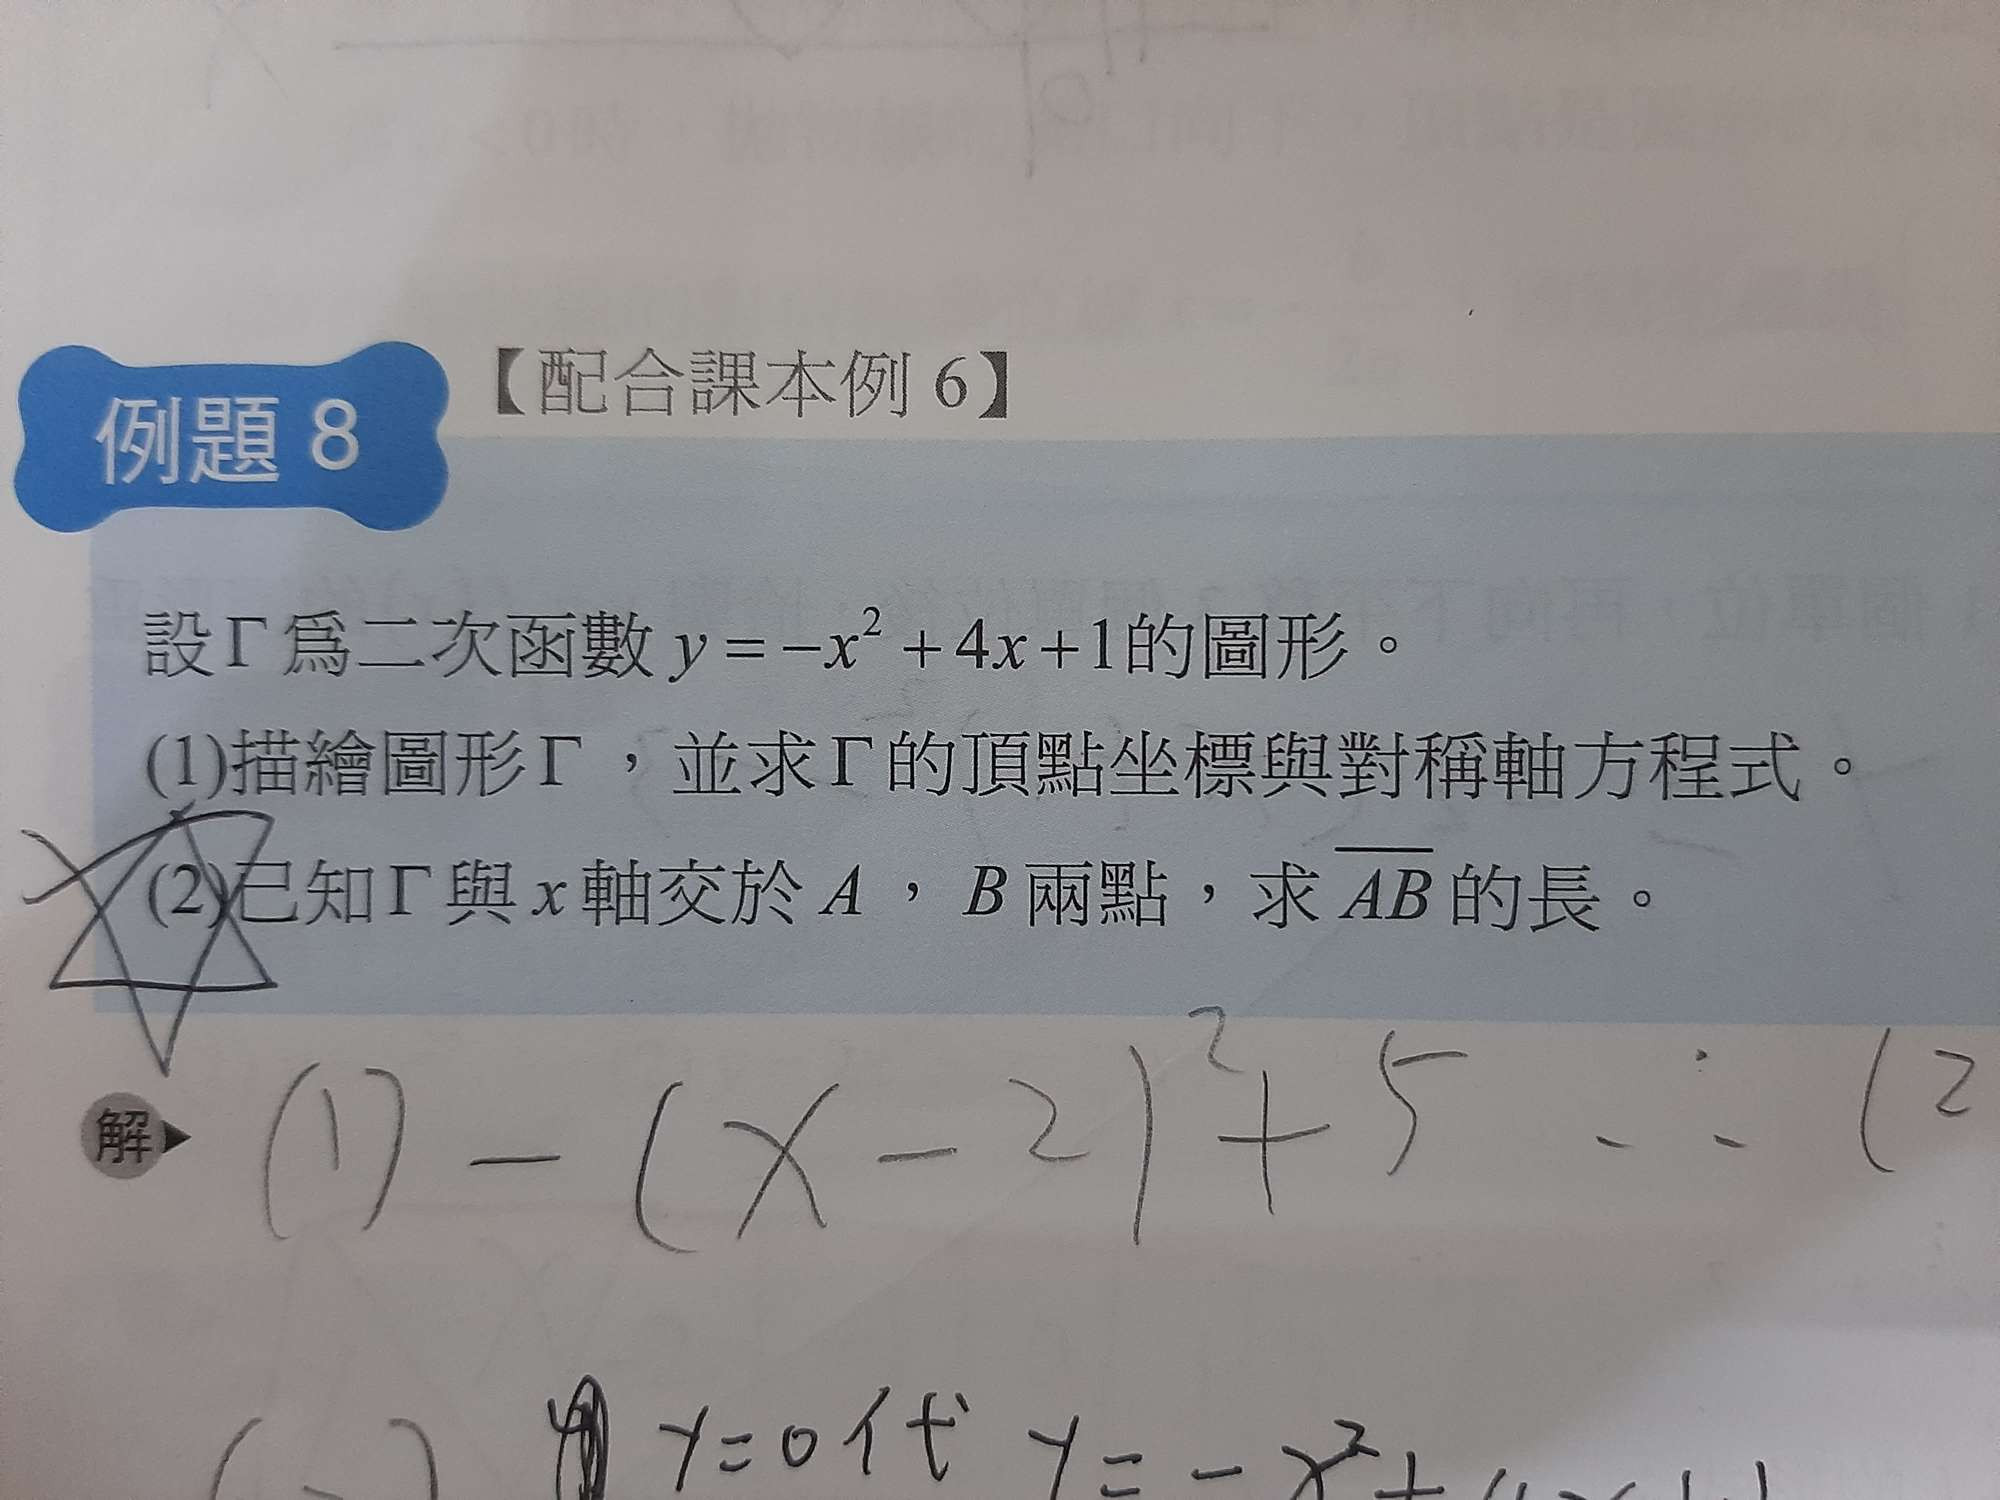 【配合課本例 6】
例題 8
設Γ為二次函數 y = −x² + 4x + 1 的圖形。
(1)描繪圖形Γ，並求Γ的頂點坐標與對稱軸方程式。
(2)已知Γ與 x 軸交於 A，B 兩點，求 A̅B̅ 的長。
解 (1) −(x−2)²+5 ∴ (2
y=0代 y=−x²+4x+1